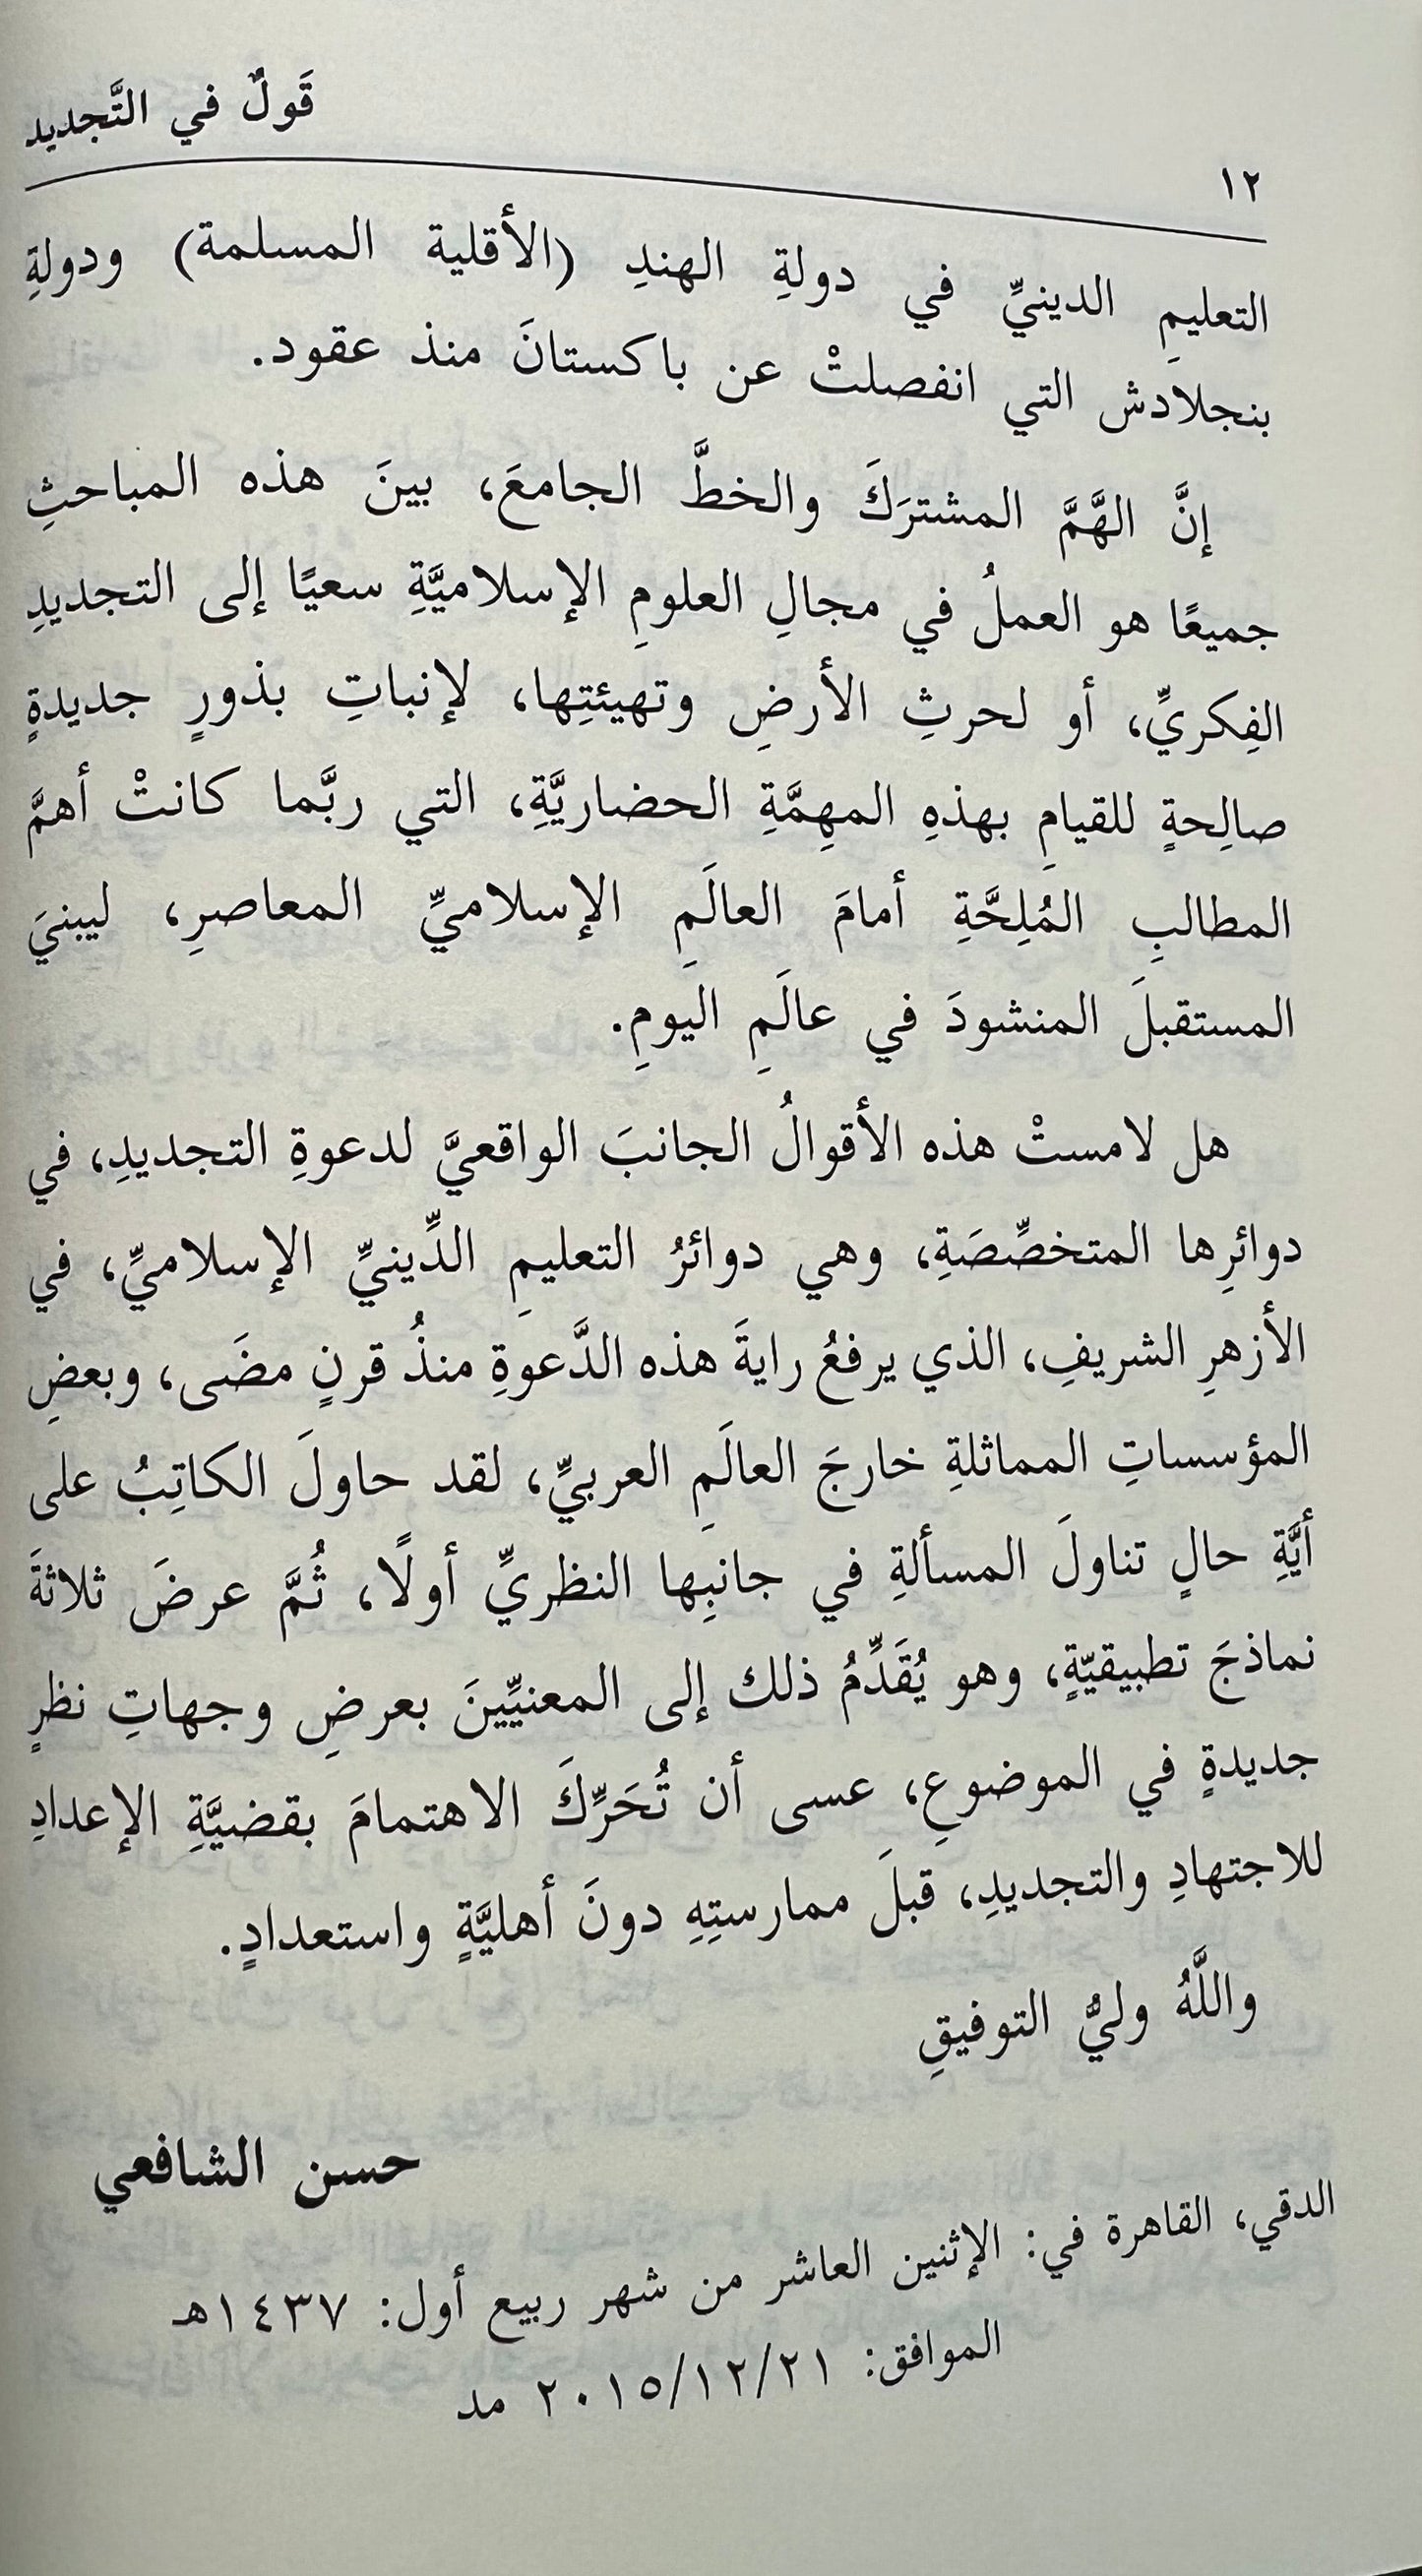 قَولٌ في التَّجديد
١٢
التعليمِ الدينيِّ في دولةِ الهندِ (الأقلية المسلمة) ودولةِ
بنجلادش التي انفصلتْ عن باكستانَ منذ عقود.
إنَّ الهَّمَّ المشترَكَ والخطَّ الجامعَ، بينَ هذه المباحثِ
جميعًا هو العملُ في مجالِ العلومِ الإسلاميَّةِ سعيًا إلى التجديدِ
الفِكريِّ، أو لحرثِ الأرضِ وتهيئتِها، لإنباتِ بذورٍ جديدةٍ
صالِحةٍ للقيامِ بهذهِ المهِمَّةِ الحضاريَّةِ، التي ربَّما كانتْ أهمَّ
المطالبِ المُلِحَّةِ أمامَ العالَمِ الإسلاميِّ المعاصرِ، ليبنيَ
المستقبلَ المنشودَ في عالَمِ اليومِ.
هل لامستْ هذه الأقوالُ الجانبَ الواقعيَّ لدعوةِ التجديدِ، في
دوائرِها المتخصِّصَةِ، وهي دوائرُ التعليمِ الدِّينيِّ الإسلاميِّ، في
الأزهرِ الشريفِ، الذي يرفعُ رايةَ هذه الدَّعوةِ منذُ قرنٍ مضَى، وبعضِ
المؤسساتِ المماثلةِ خارجَ العالَمِ العربيِّ، لقد حاولَ الكاتِبُ على
أيَّةِ حالٍ تناولَ المسألةِ في جانبِها النظريِّ أولًا، ثُمَّ عرضَ ثلاثةَ
نماذجَ تطبيقيّةٍ، وهو يُقَدِّمُ ذلك إلى المعنيِّينَ بعرضِ وجهاتِ نظرٍ
جديدةٍ في الموضوعِ، عسى أن تُحَرِّكَ الاهتمامَ بقضيَّةِ الإعدادِ
للاجتهادِ والتجديدِ، قبلَ ممارستِهِ دونَ أهليَّةٍ واستعدادٍ.
واللَّهُ وليُّ التوفيقِ
حسن الشافعي
الدقي، القاهرة في: الإثنين العاشر من شهر ربيع أول: ١٤٣٧هـ
الموافق: ٢٠١٥/١٢/٢١ مد